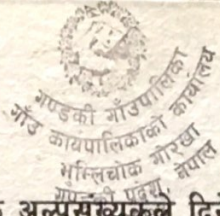 गण्डकी गाँउपालिका
गाँउ कार्यपालिकाको कार्यालय
भम्लिचोक गोरखा
गण्डकी प्रदेश नेपाल
अल्पसंख्यकले